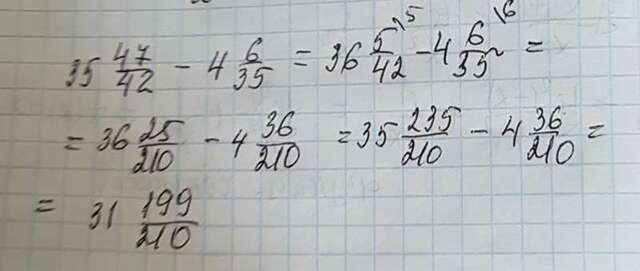 35 47/42 - 4 6/35 = 36 5/42 \5 - 4 6/35 \6 =
= 36 25/210 - 4 36/210 = 35 235/210 - 4 36/210 =
= 31 199/210